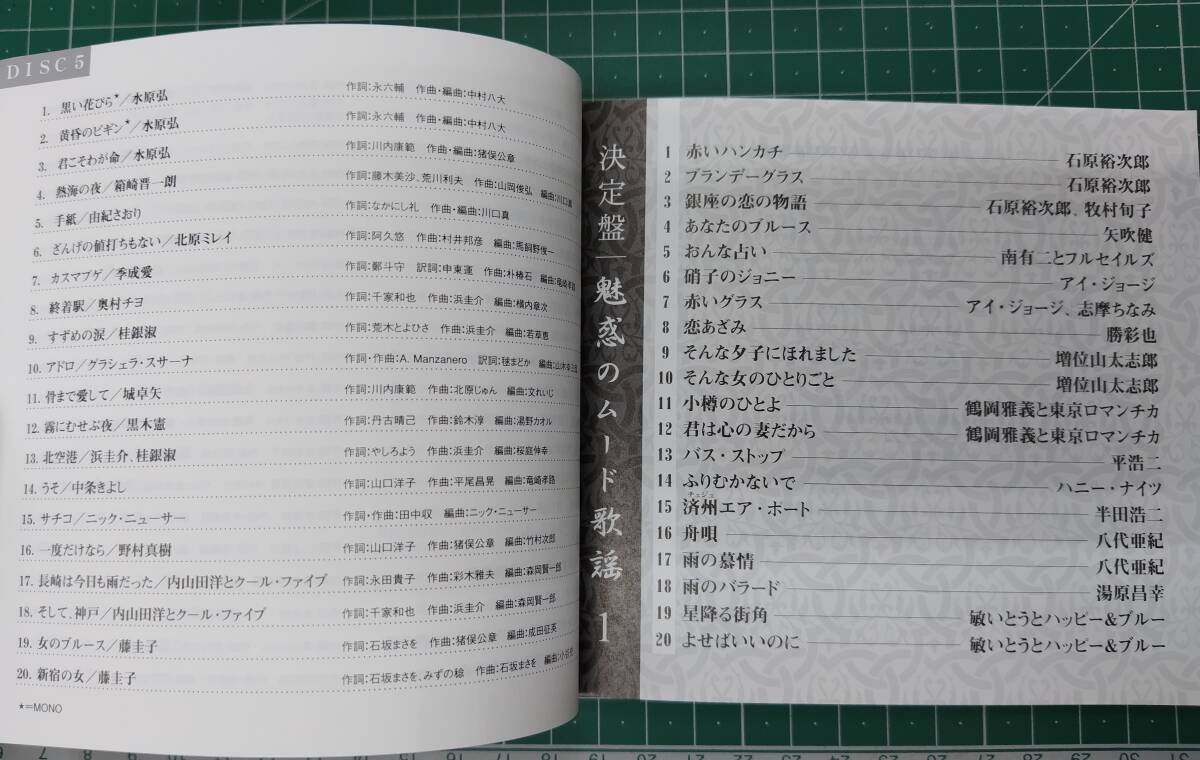 DISC 5
1. 黒い花びら*／水原弘 作詞：永六輔 作曲・編曲：中村八大
2. 黄昏のビギン*／水原弘 作詞：永六輔 作曲・編曲：中村八大
3. 君こそわが命／水原弘 作詞：川内康範 作曲・編曲：猪俣公章
4. 熱海の夜／箱崎晋一朗 作詞：藤木美沙、荒川利夫 作曲：山岡俊弘 編曲：川口真
5. 手紙／由紀さおり 作詞：なかにし礼 作曲・編曲：川口真
6. ざんげの値打ちもない／北原ミレイ 作詞：阿久悠 作曲：村井邦彦 編曲：馬飼野俊一
7. カスマプゲ／季成愛 作詞：鄭斗守 訳詞：申東運 作曲：朴椿石 編曲：竜崎孝路
8. 終着駅／奥村チヨ 作詞：千家和也 作曲：浜圭介 編曲：横内章次
9. すずめの涙／桂銀淑 作詞：荒木とよひさ 作曲：浜圭介 編曲：若草恵
10. アドロ／グラシェラ・スサーナ 作詞・作曲：A. Manzanero 訳詞：毬まどか 編曲：
11. 骨まで愛して／城卓矢 作詞：川内康範 作曲：北原じゅん 編曲：文れいじ
12. 霧にむせぶ夜／黒木憲 作詞：丹古晴己 作曲：鈴木淳 編曲：湯野カオル
13. 北空港／浜圭介、桂銀淑 作詞：やしろよう 作曲：浜圭介 編曲：桜庭伸幸
14. うそ／中条きよし 作詞：山口洋子 作曲：平尾昌晃 編曲：竜崎孝路
15. サチコ／ニック・ニューサー 作詞・作曲：田中収 編曲：ニック・ニューサー
16. 一度だけなら／野村真樹 作詞：山口洋子 作曲：猪俣公章 編曲：竹村次郎
17. 長崎は今日も雨だった／内山田洋とクール・ファイブ 作詞：永田貴子 作曲：彩木雅夫 編曲：森岡賢一郎
18. そして、神戸／内山田洋とクール・ファイブ 作詞：千家和也 作曲：浜圭介 編曲：森岡賢一郎
19. 女のブルース／藤圭子 作詞：石坂まさを 作曲：猪俣公章 編曲：成田征英
20. 新宿の女／藤圭子 作詞：石坂まさを、みずの稔 作曲：石坂まさを 編曲：
*=MONO
決定盤｜魅惑のムード歌謡 1
1 赤いハンカチ 石原裕次郎
2 ブランデーグラス 石原裕次郎
3 銀座の恋の物語 石原裕次郎、牧村旬子
4 あなたのブルース 矢吹健
5 おんな占い 南有二とフルセイルズ
6 硝子のジョニー アイ・ジョージ
7 赤いグラス アイ・ジョージ、志摩ちなみ
8 恋あざみ 勝彩也
9 そんな夕子にほれました 増位山太志郎
10 そんな女のひとりごと 増位山太志郎
11 小樽のひとよ 鶴岡雅義と東京ロマンチカ
12 君は心の妻だから 鶴岡雅義と東京ロマンチカ
13 バス・ストップ 平浩二
14 ふりむかないで ハニー・ナイツ
チェジュ
15 済州エア・ポート 半田浩二
16 舟唄 八代亜紀
17 雨の慕情 八代亜紀
18 雨のバラード 湯原昌幸
19 星降る街角 敏いとうとハッピー&ブルー
20 よせばいいのに 敏いとうとハッピー&ブルー